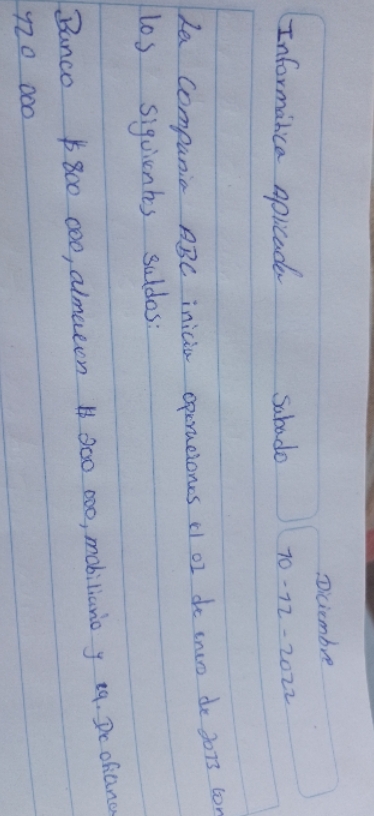 Diciembre
Informática Aplicada Sabado 10-12-2022
La Compania ABC inicia operaciones el 02 de enero de 2013 con
los siguientes saldos:
Banco $ 800 000, almacen $ 200 000, mobiliario y eq. De oficina
420 000